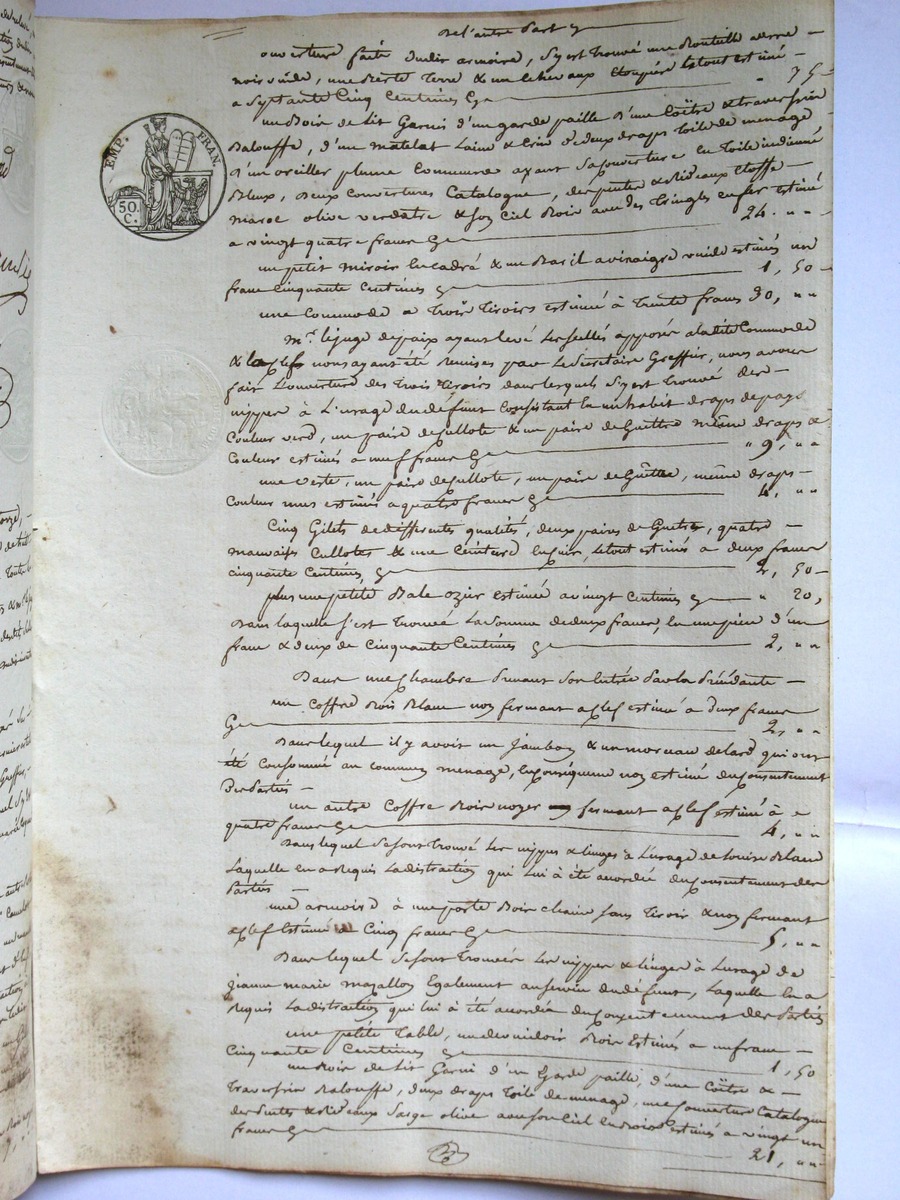 De l'autre Part
ouverture faite dudit armoire, s'y est trouvé une Bouteille verre
noir vuide, une Verte Terre & un le tout estimé
a Septante Cinq Centimes " 75
un Bois de Lit Garni d'un garde paille d'une Coëtre & traversin
Balouffe, d'un matelat Laine & Crin de deux draps Toile de menage
d'un oreiller plume Commune ayant sa couverture en Toile indienne
Bleux, deux Couvertures Catalogne, des pentes & Rideaux Etoffe
maroc olive verdatre & son Ciel Bois avec des Tringles en fer estimé
a vingt quatre francs 24. " "
un petit miroir Encadré & un Baril a vinaigre vuide estimés un
franc Cinquante Centimes 1, 50
une Commode a Trois Tiroirs estimée à Trente francs 30, " "
Mr. le juge de paix ayant levé les scellés apposés a la dite Commode
& la clef nous ayant été Remises par le Secrétaire Greffier, nous avons
fait L'ouverture des trois Tiroirs dans lesquels s'y est Trouvé des
nippes à L'usage du défunt Consistant En un habit draps de pays
Couleur verd, un paire de Cullote & un paire de Guettre même draps &
Couleur estimés a neuf francs " 9, " "
une veste, un paire de Cullote, un paire de Guettre, même draps
Couleur estimés a quatre francs 4, " "
Cinq Gilets de differentes qualités, deux paires de Guetre, quatre
mauvaises Cullotes & une Ceinture En cuir, le tout estimés a deux francs
cinquante Centimes 2, 50
plus une petite Bale ozier estimée a vingt Centimes " 20,
Dans laquelle s'est Trouvée La Somme de deux francs, En une piece d'un
franc & deux de Cinquante Centimes 2, " "
Dans une chambre prenant son Entrée par la précédante
un Coffre Bois Blanc non fermant a clef estimé a deux francs
2, " "
Dans lequel il y avoit un Jambon & un morceau de lard qui ont
été Consommé au commun menage, En conséquence non estimé du consentement
Des Parties
un autre Coffre Bois noyer fermant a clef estimé à
quatre francs 4, " "
Dans lequel se sont Trouvé Les nippes & linges à L'usage de Louise Blanc
Laquelle en a Requis La distraction qui Lui à été accordée du consentement des
Parties
une armoire à une porte Bois chaine sans Tiroir & non fermant
a clef Estimé a Cinq francs 5, " "
Dans lequel se sont Trouvées Les nippes & Linges à L'usage de
Jeanne marie mazallon Egalement au service du défunt, Laquelle En a
Requis La distraction qui lui à été accordée du consentement des Parties
une petite Table, un devuidoir Bois Estimés a un franc
Cinquante Centimes 1, 50
un Bois de Lit Garni d'un Garde paille, d'une Coëtre &
Traversin Balouffe, deux draps Toile de menage, une Couverture Catalogne
des Pentes & Rideaux Sarge olive avec son Ciel En Bois estimés a vingt un
francs 21, " "
EMP. FRAN.
50.
C.